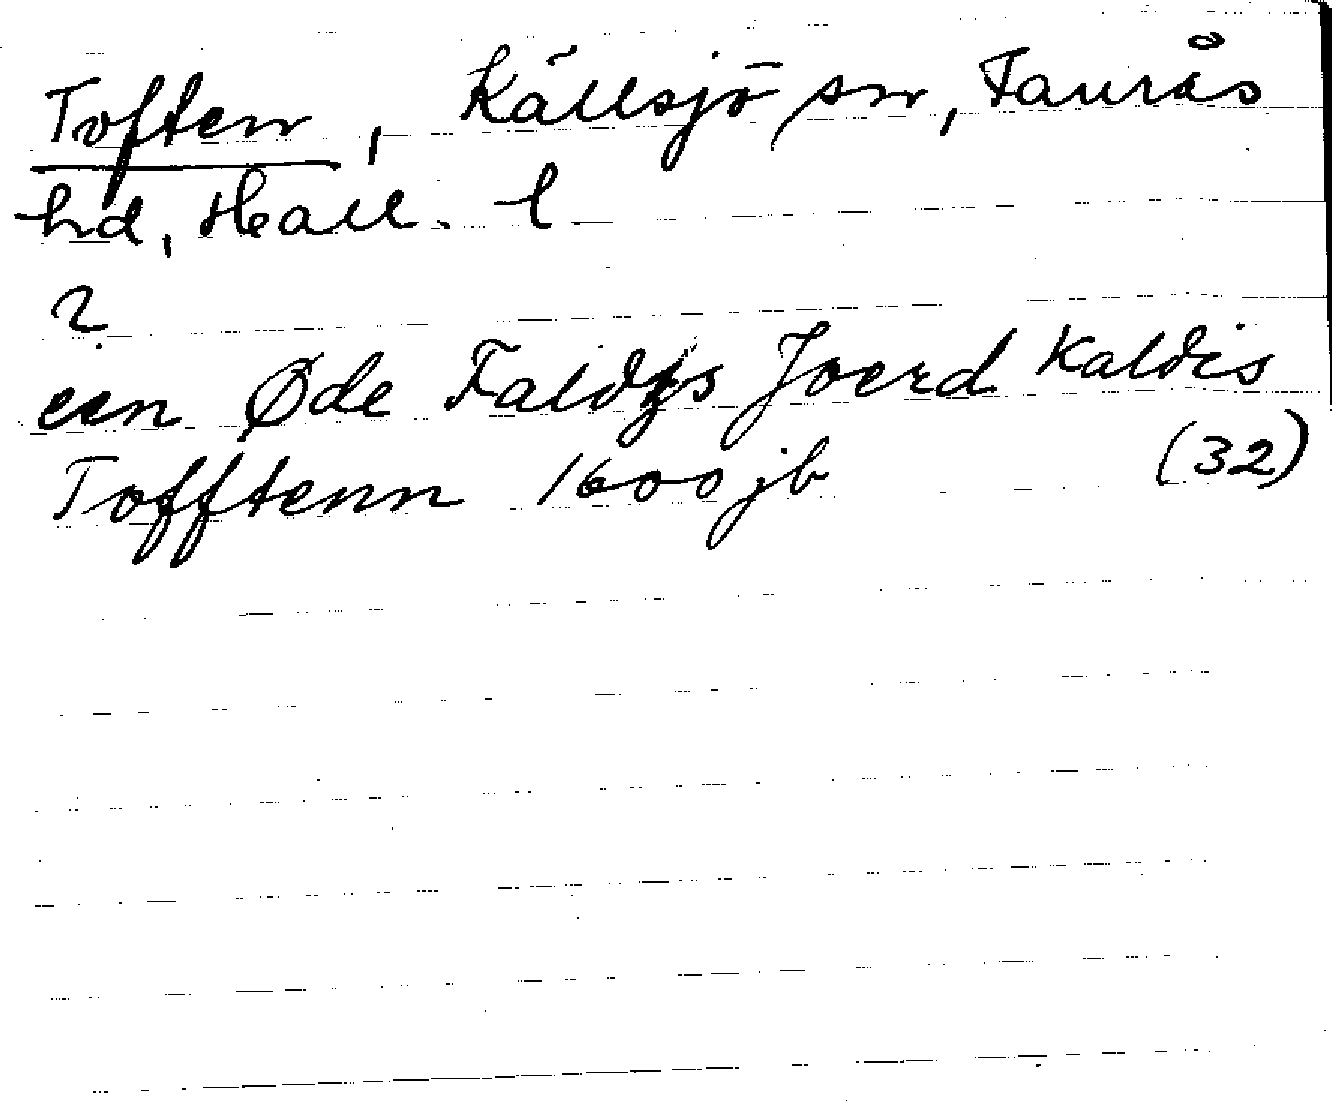 Toften, Källsjö sn, Faurås
hd, Hall. l
?
een Øde Faldgs Joerd Kaldis
Tofftenn 1600 jb (32)